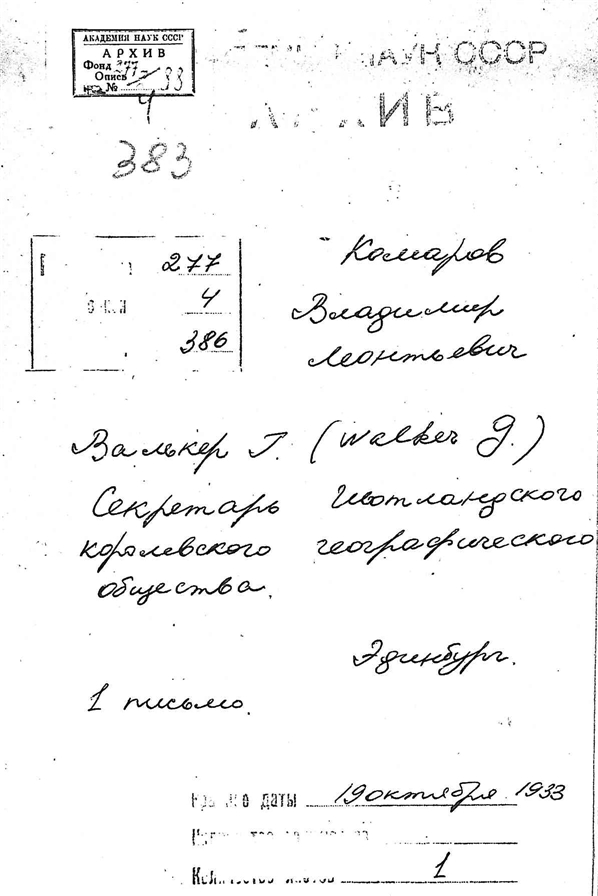 АКАДЕМИЯ НАУК СССР
АРХИВ
Фонд 277
Опись
№ 33
4
НАУК СССР
383
277
4
386
Комаров
Владимир
Леонтьевич
Валькер Г. (Walker G.)
Секретарь Шотландского
королевского географического
общества.
Эдинбург.
1 письмо.
даты 19 октября 1933
Количество листов 1